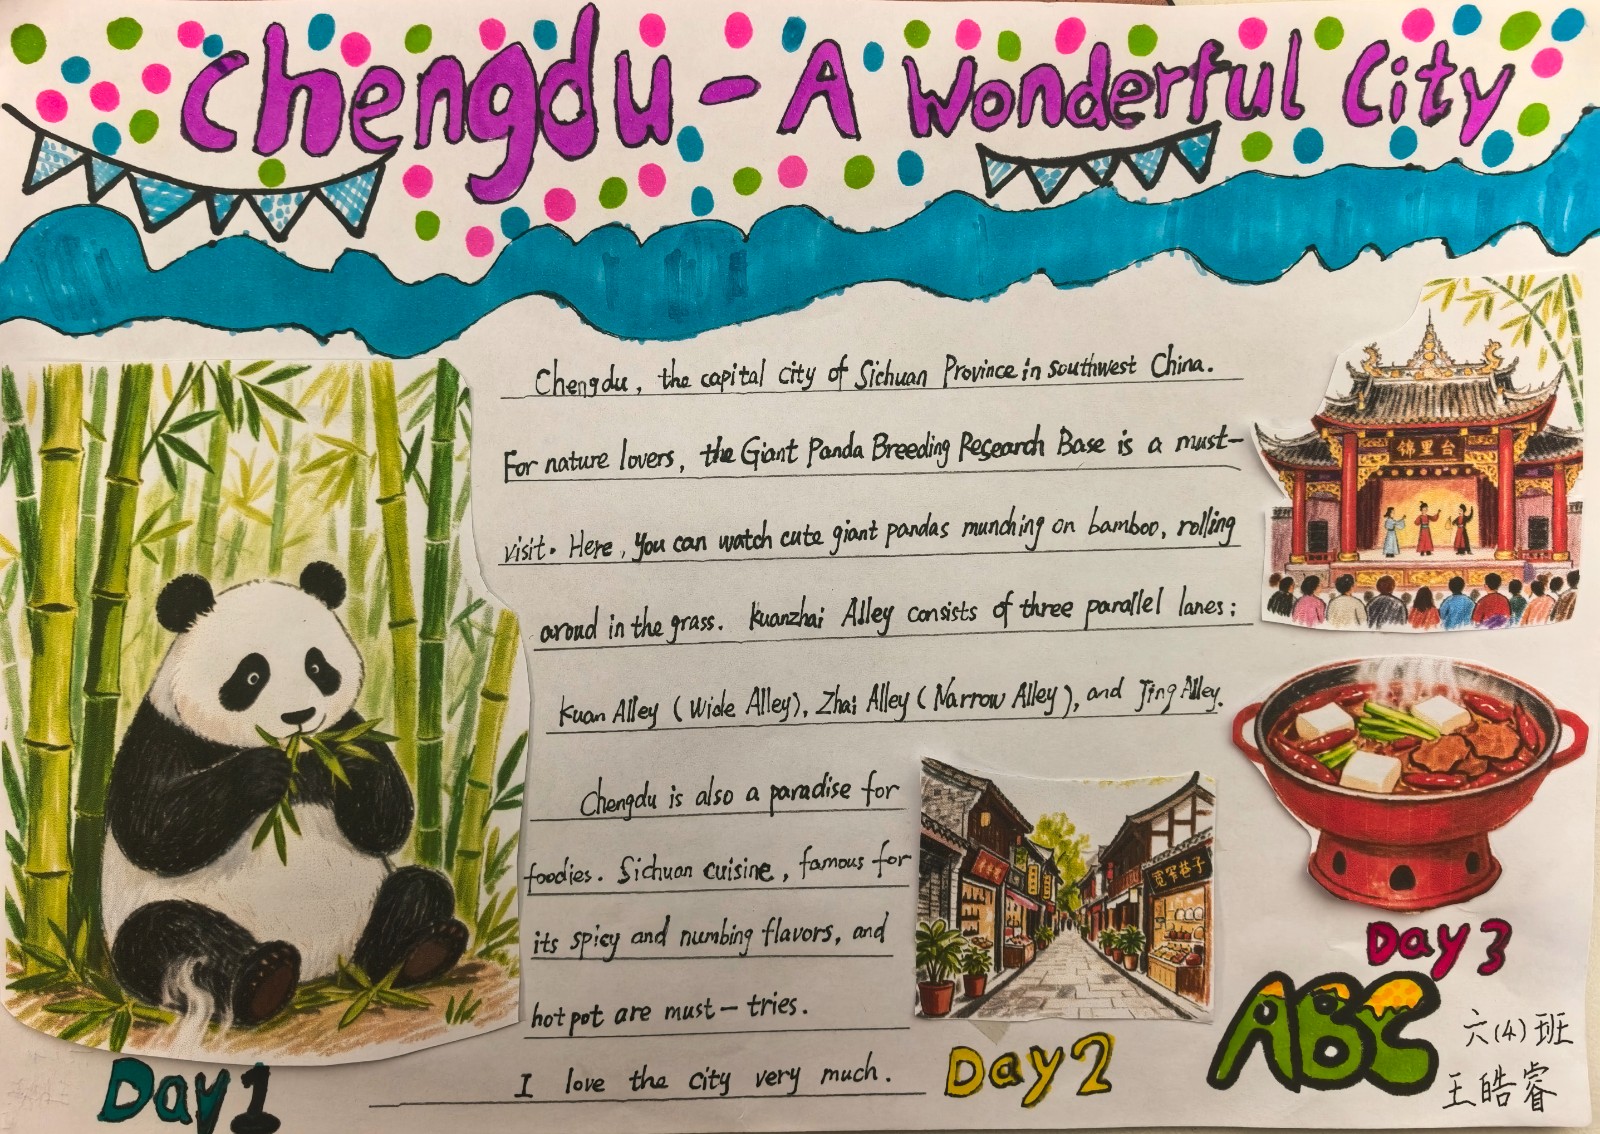 Chengdu - A Wonderful City
Chengdu, the capital city of Sichuan Province in southwest China.
For nature lovers, the Giant Panda Breeding Research Base is a must-
visit. Here, you can watch cute giant pandas munching on bamboo, rolling
aroud in the grass. Kuanzhai Alley consists of three parallel lanes:
Kuan Alley (Wide Alley), Zhai Alley (Narrow Alley), and Jing Alley.
Chengdu is also a paradise for
foodies. Sichuan cuisine, famous for
its spicy and numbing flavors, and
hot pot are must-tries.
I love the city very much.
锦里台
宽窄巷子
Day 1
Day 2
Day 3
ABC
六(4)班
王皓睿